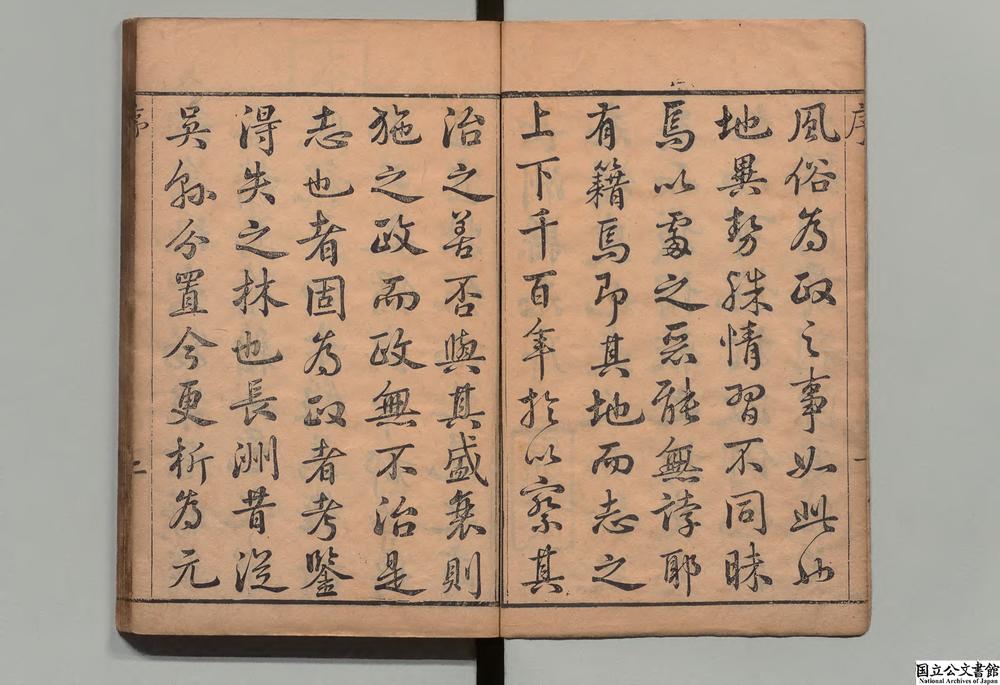 序
風俗為政之事如此夫
地異勢殊情習不同昧
焉以處之惡能無誖耶
有籍焉即其地而志之
上下千百年於以察其
一
治之善否與其盛衰則
施之政而政無不治是
志也者固為政者考鑒
得失之林也長洲昔從
吳縣分置今更析為元
序
二
国立公文書館
National Archives of Japan